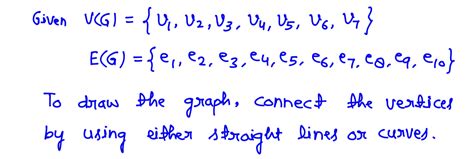 Given V(G) = {v₁, v₂, v₃, v₄, v₅, v₆, v₇}
E(G) = {e₁, e₂, e₃, e₄, e₅, e₆, e₇, e₈, e₉, e₁₀}
To draw the graph, connect the vertices
by using either straight lines or curves.